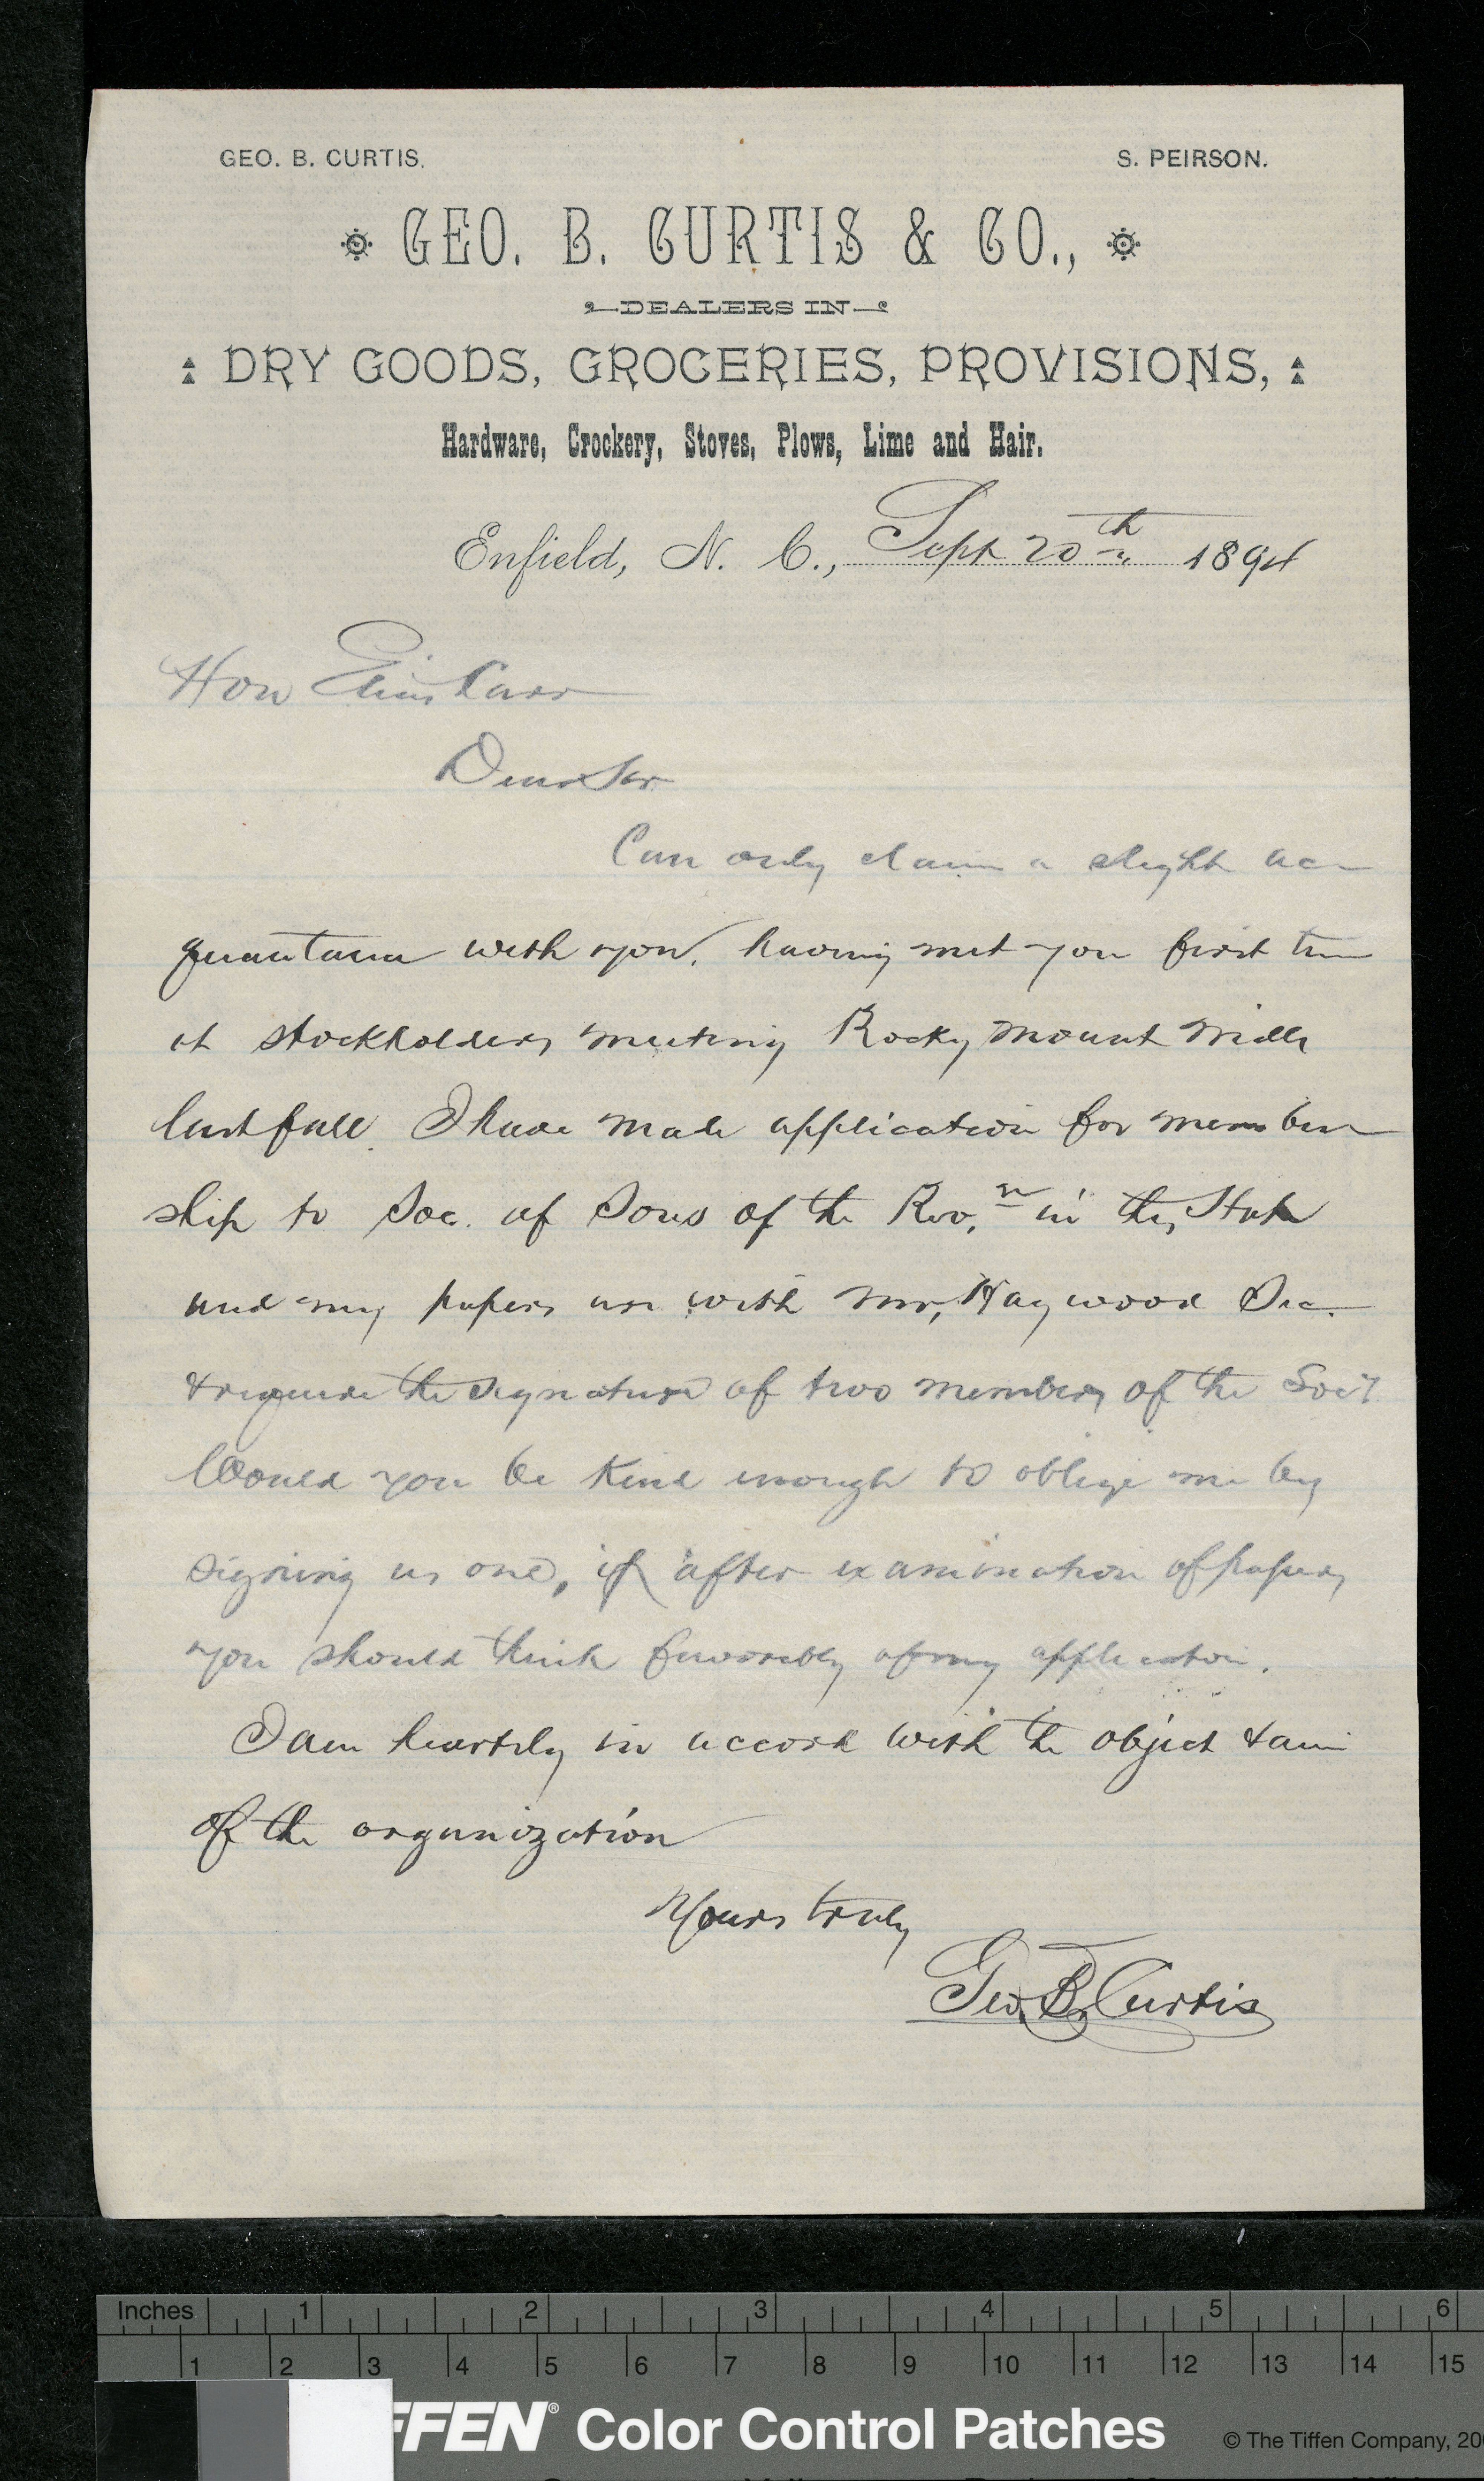 GEO. B. CURTIS. S. PEIRSON.
GEO. B. CURTIS & CO.,
DEALERS IN
DRY GOODS, GROCERIES, PROVISIONS,
Hardware, Crockery, Stoves, Plows, Lime and Hair.
Enfield, N. C., Sept 20th 1894
Hon Elias Carr
Dear Sir
Can only claim a slight ac
quaintance with you, having met you first time
at stockholders meeting Rocky Mount Mills
last fall. I have made application for member
ship to Soc. of Sons of the Rev.n in this State
and my papers are with Mr, Haywood Sec.
& require the signature of two members of the Soc'y
Would you be kind enough to oblige me by
signing as one, if after examination of papers
you should think favorably of my application.
I am heartily in accord with the object & aim
of the organization
Yours truly
Geo. B. Curtis
Inches 1 2 3 4 5 6
1 2 3 4 5 6 7 8 9 10 11 12 13 14 15
FFEN® Color Control Patches © The Tiffen Company, 20